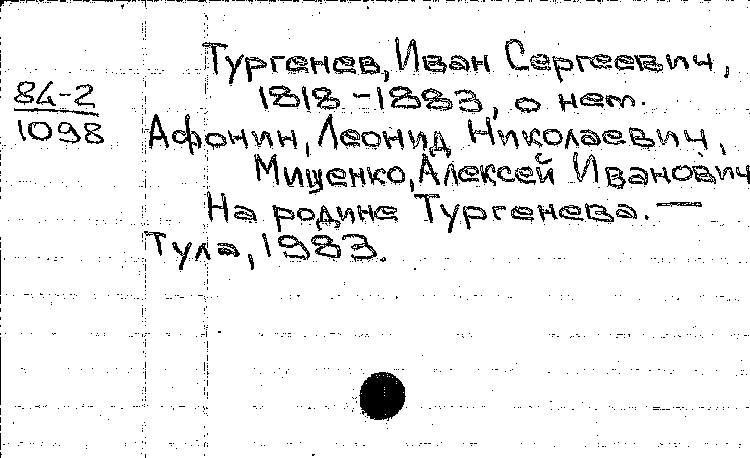 Тургенев, Иван Сергеевич,
84-2
1818-1883, о нем.
1098
Афонин, Леонид Николаевич,
Мищенко, Алексей Иванович
На родине Тургенева. —
Тула, 1983.